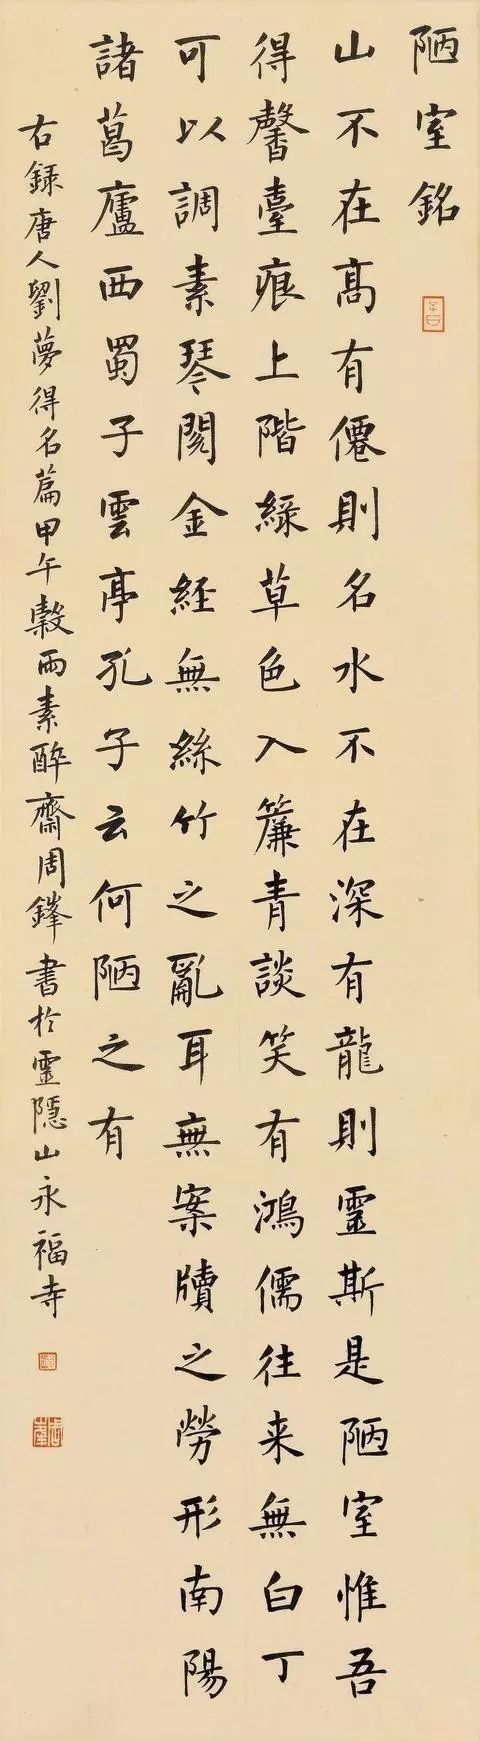 陋室銘
山不在高有僊則名水不在深有龍則靈斯是陋室惟吾
得馨臺痕上階綠草色入簾青談笑有鴻儒往来無白丁
可以調素琴閱金経無絲竹之亂耳無案牘之勞形南陽
諸葛廬西蜀子雲亭孔子云何陋之有
右錄唐人劉夢得名篇甲午穀雨素醉齋周鋒書於靈隱山永福寺